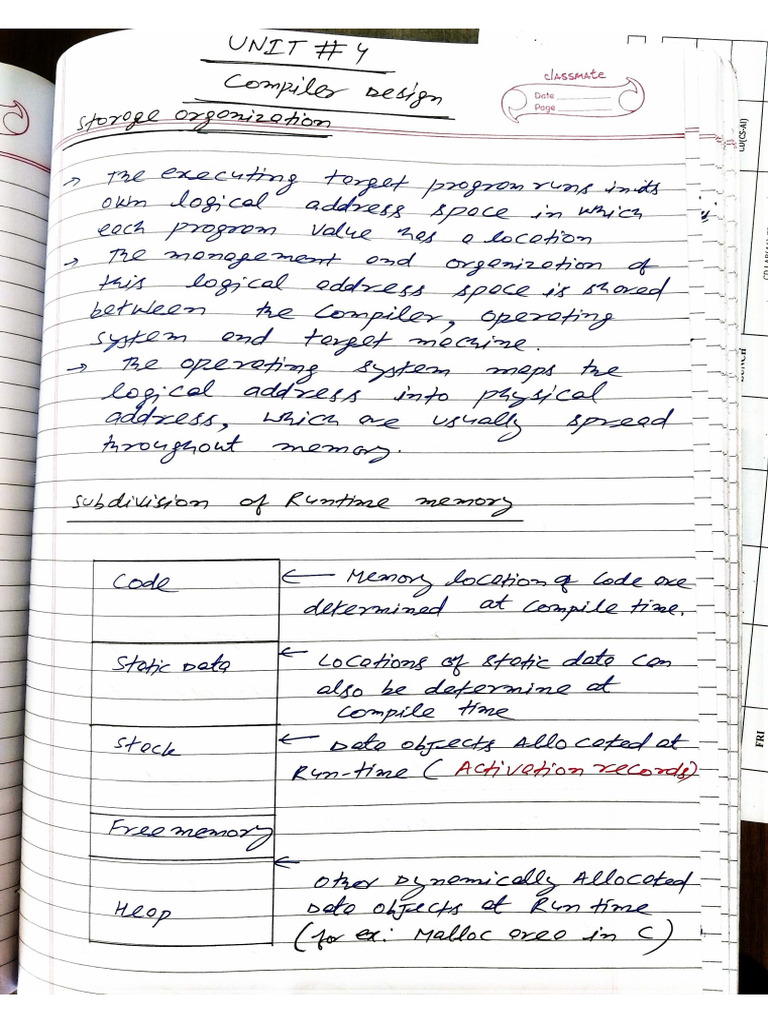 UNIT # 4
Compiler Design
classmate
Date
Page
Storage organization
→ The executing target program runs in its
own logical address space in which
each program value has a location
→ The management and organization of
this logical address space is shared
between the compiler, operating
system and target machine.
→ The operating system maps the
logical address into physical
address, which are usually spread
throughout memory.
Subdivision of Runtime memory
Code ← Memory location of code are
determined at compile time.
Static Data ← Locations of static data can
also be determine at
compile time
Stack ← Data objects Allocated at
Run-time (Activation records)
Free memory
← Other Dynamically Allocated
Heap Data objects at Run time
(for ex: Malloc area in C)
LUNCH
FRI